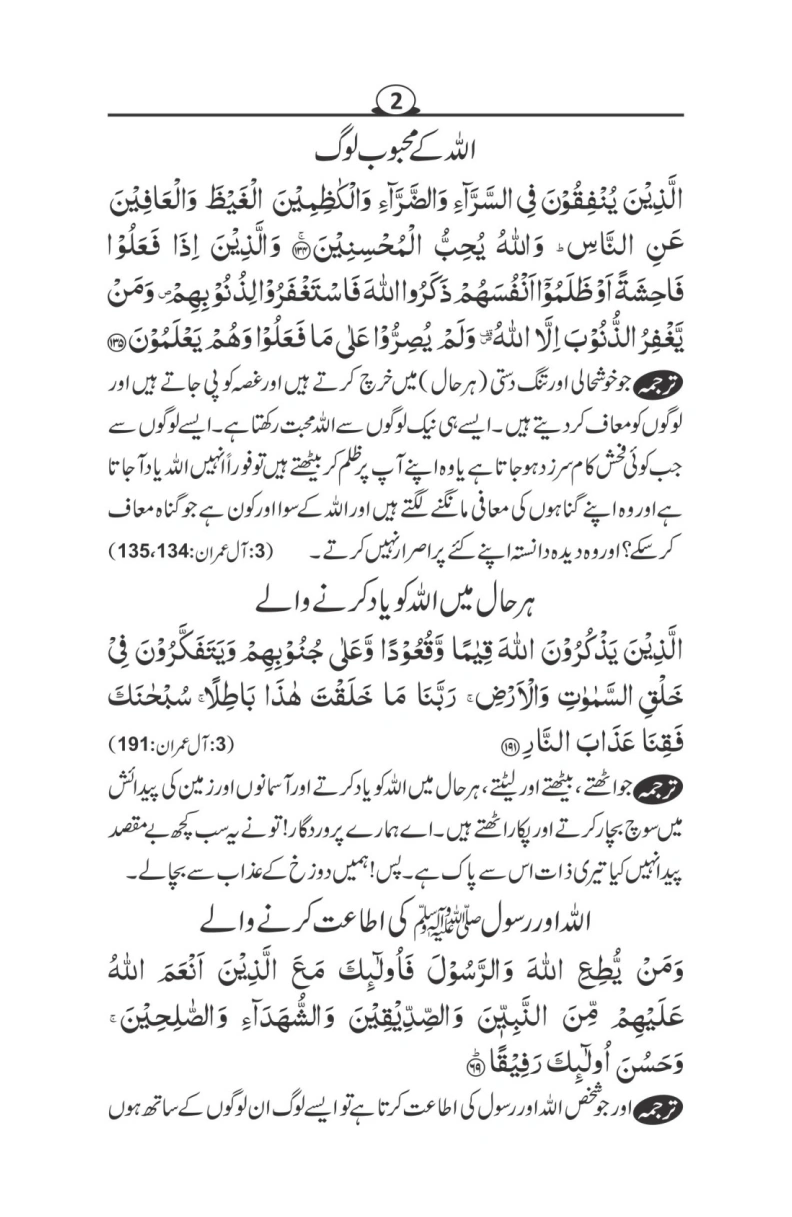 2
اللہ کے محبوب لوگ
الَّذِيْنَ يُنْفِقُوْنَ فِي السَّرَّآءِ وَالضَّرَّآءِ وَالْكٰظِمِيْنَ الْغَيْظَ وَالْعَافِيْنَ
عَنِ النَّاسِ ؕ وَاللّٰهُ يُحِبُّ الْمُحْسِنِيْنَ ۚ﴿۱۳۴﴾ وَالَّذِيْنَ اِذَا فَعَلُوْا
فَاحِشَةً اَوْ ظَلَمُوْۤا اَنْفُسَهُمْ ذَكَرُوا اللّٰهَ فَاسْتَغْفَرُوْا لِذُنُوْبِهِمْ ۪ وَمَنْ
يَّغْفِرُ الذُّنُوْبَ اِلَّا اللّٰهُ ۪۫ وَلَمْ يُصِرُّوْا عَلٰى مَا فَعَلُوْا وَهُمْ يَعْلَمُوْنَ ﴿۱۳۵﴾
ترجمہ جو خوشحالی اور تنگ دستی (ہر حال) میں خرچ کرتے ہیں اور غصہ کو پی جاتے ہیں اور
لوگوں کو معاف کر دیتے ہیں۔ ایسے ہی نیک لوگوں سے اللہ محبت رکھتا ہے۔ ایسے لوگوں سے
جب کوئی فحش کام سرزد ہو جاتا ہے یا وہ اپنے آپ پر ظلم کر بیٹھتے ہیں تو فوراً انہیں اللہ یاد آ جاتا
ہے اور وہ اپنے گناہوں کی معافی مانگنے لگتے ہیں اور اللہ کے سوا اور کون ہے جو گناہ معاف
کر سکے؟ اور وہ دیدہ دانستہ اپنے کئے پر اصرار نہیں کرتے۔ (3:آل عمران:134،135)
ہر حال میں اللہ کو یاد کرنے والے
الَّذِيْنَ يَذْكُرُوْنَ اللّٰهَ قِيٰمًا وَّقُعُوْدًا وَّعَلٰى جُنُوْبِهِمْ وَيَتَفَكَّرُوْنَ فِيْ
خَلْقِ السَّمٰوٰتِ وَالْاَرْضِ ۚ رَبَّنَا مَا خَلَقْتَ هٰذَا بَاطِلًا ۚ سُبْحٰنَكَ
فَقِنَا عَذَابَ النَّارِ ﴿۱۹۱﴾ (3:آل عمران:191)
ترجمہ جو اٹھتے، بیٹھتے اور لیٹتے، ہر حال میں اللہ کو یاد کرتے اور آسمانوں اور زمین کی پیدائش
میں سوچ بچار کرتے اور پکار اٹھتے ہیں۔ اے ہمارے پروردگار! تو نے یہ سب کچھ بے مقصد
پیدا نہیں کیا تیری ذات اس سے پاک ہے۔ پس! ہمیں دوزخ کے عذاب سے بچا لے۔
اللہ اور رسول ﷺ کی اطاعت کرنے والے
وَمَنْ يُّطِعِ اللّٰهَ وَالرَّسُوْلَ فَاُولٰٓئِكَ مَعَ الَّذِيْنَ اَنْعَمَ اللّٰهُ
عَلَيْهِمْ مِّنَ النَّبِيّٖنَ وَالصِّدِّيْقِيْنَ وَالشُّهَدَآءِ وَالصّٰلِحِيْنَ ۚ
وَحَسُنَ اُولٰٓئِكَ رَفِيْقًا ؕ﴿۶۹﴾
ترجمہ اور جو شخص اللہ اور رسول کی اطاعت کرتا ہے تو ایسے لوگ ان لوگوں کے ساتھ ہوں